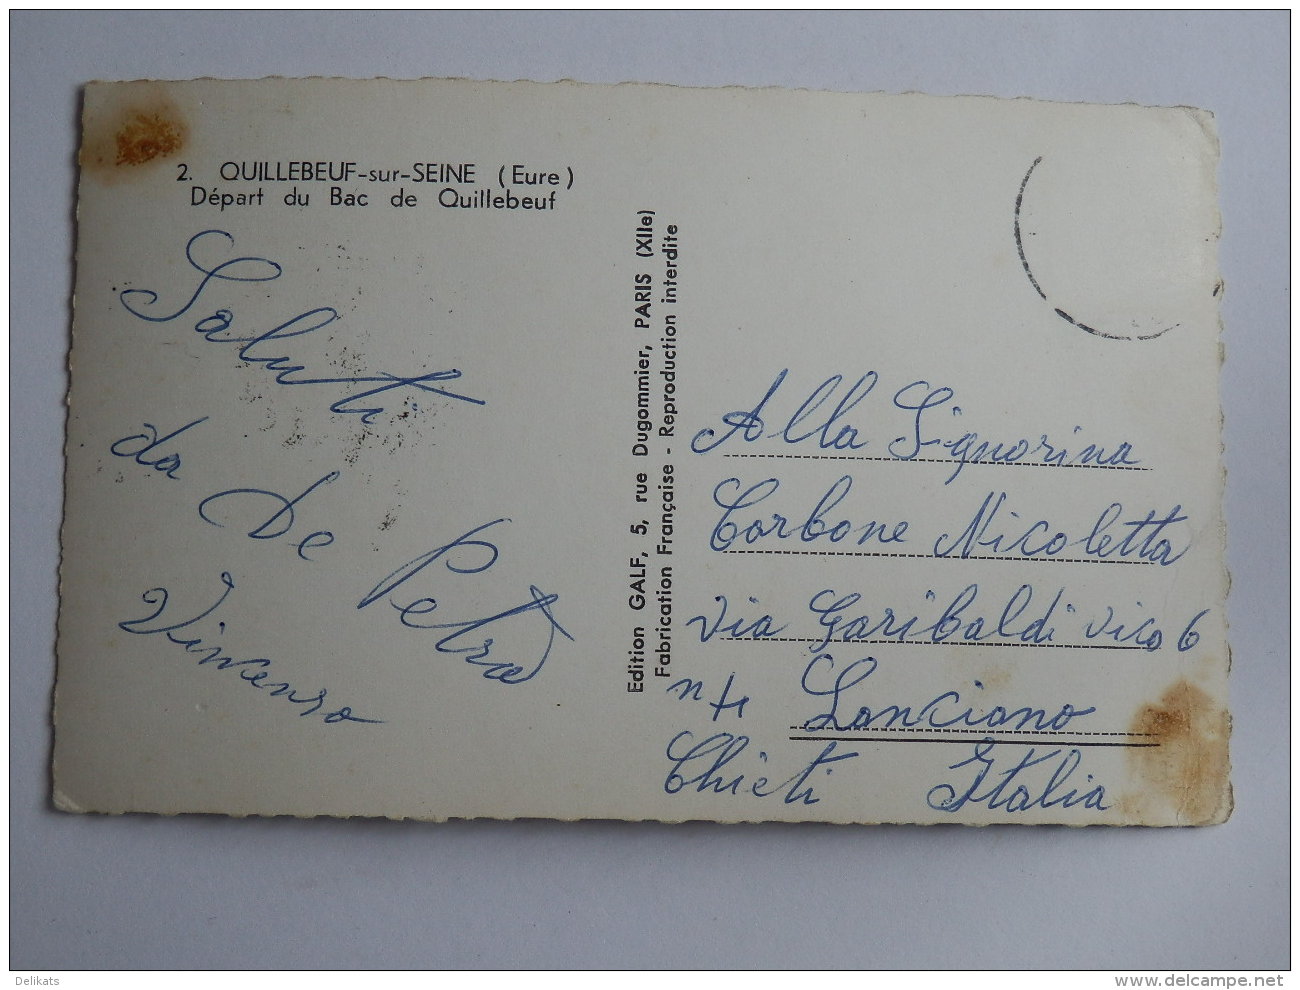 2. QUILLEBEUF-sur-SEINE (Eure)
Départ du Bac de Quillebeuf
Saluti
da
De Petra
Vincenzo
Edition GALF, 5, rue Dugommier, PARIS (XIIe)
Fabrication Française - Reproduction interdite
Alla Signorina
Carbone Nicoletta
via Garibaldi vico 6
Lanciano
Chieti Italia
Delikats
www.delcampe.net